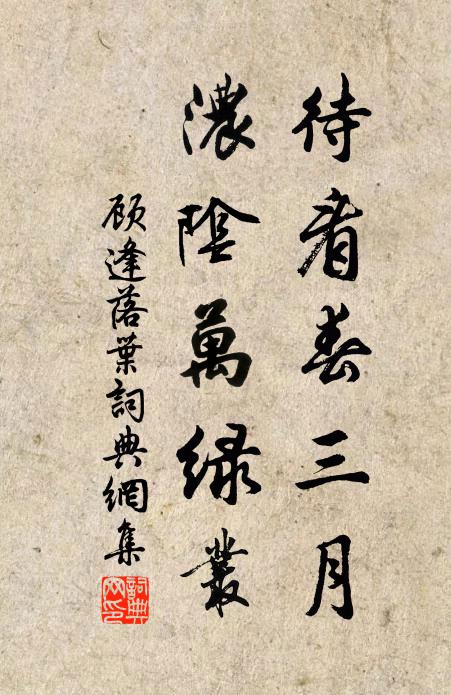 待看春三月
濃陰萬綠叢
顧逢落葉詞典網集
詞典網印